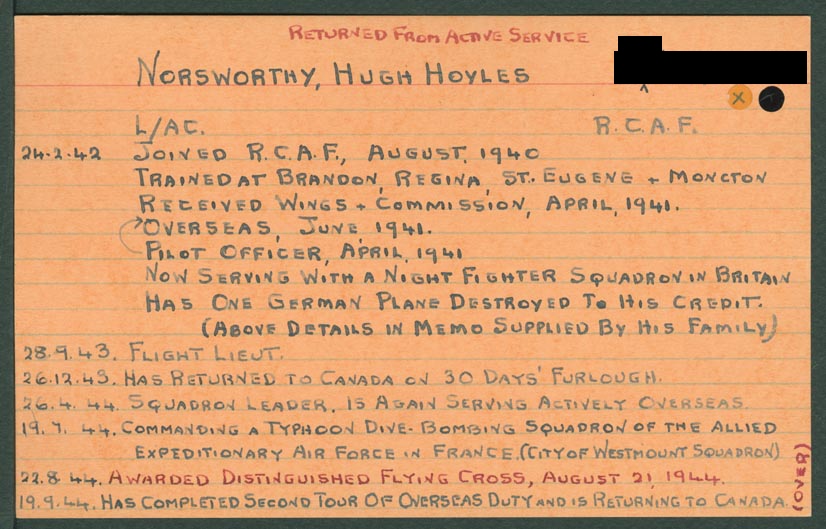 RETURNED FROM ACTIVE SERVICE
NORSWORTHY, HUGH HOYLES
X
L/AC. R.C.A.F.
24-2-42 JOINED R.C.A.F., AUGUST, 1940
TRAINED AT BRANDON, REGINA, ST. EUGENE + MONCTON
RECEIVED WINGS + COMMISSION, APRIL, 1941.
OVERSEAS, JUNE 1941.
PILOT OFFICER, APRIL, 1941
NOW SERVING WITH A NIGHT FIGHTER SQUADRON IN BRITAIN
HAS ONE GERMAN PLANE DESTROYED TO HIS CREDIT.
(ABOVE DETAILS IN MEMO SUPPLIED BY HIS FAMILY)
28.9.43. FLIGHT LIEUT.
26.12.43. HAS RETURNED TO CANADA ON 30 DAYS' FURLOUGH.
26.4. 44. SQUADRON LEADER. IS AGAIN SERVING ACTIVELY OVERSEAS.
19.7. 44. COMMANDING A TYPHOON DIVE-BOMBING SQUADRON OF THE ALLIED
EXPEDITIONARY AIR FORCE IN FRANCE. (CITY OF WESTMOUNT SQUADRON)
22.8.44. AWARDED DISTINGUISHED FLYING CROSS, AUGUST 21, 1944.
19.9.44. HAS COMPLETED SECOND TOUR OF OVERSEAS DUTY AND IS RETURNING TO CANADA.
(OVER)